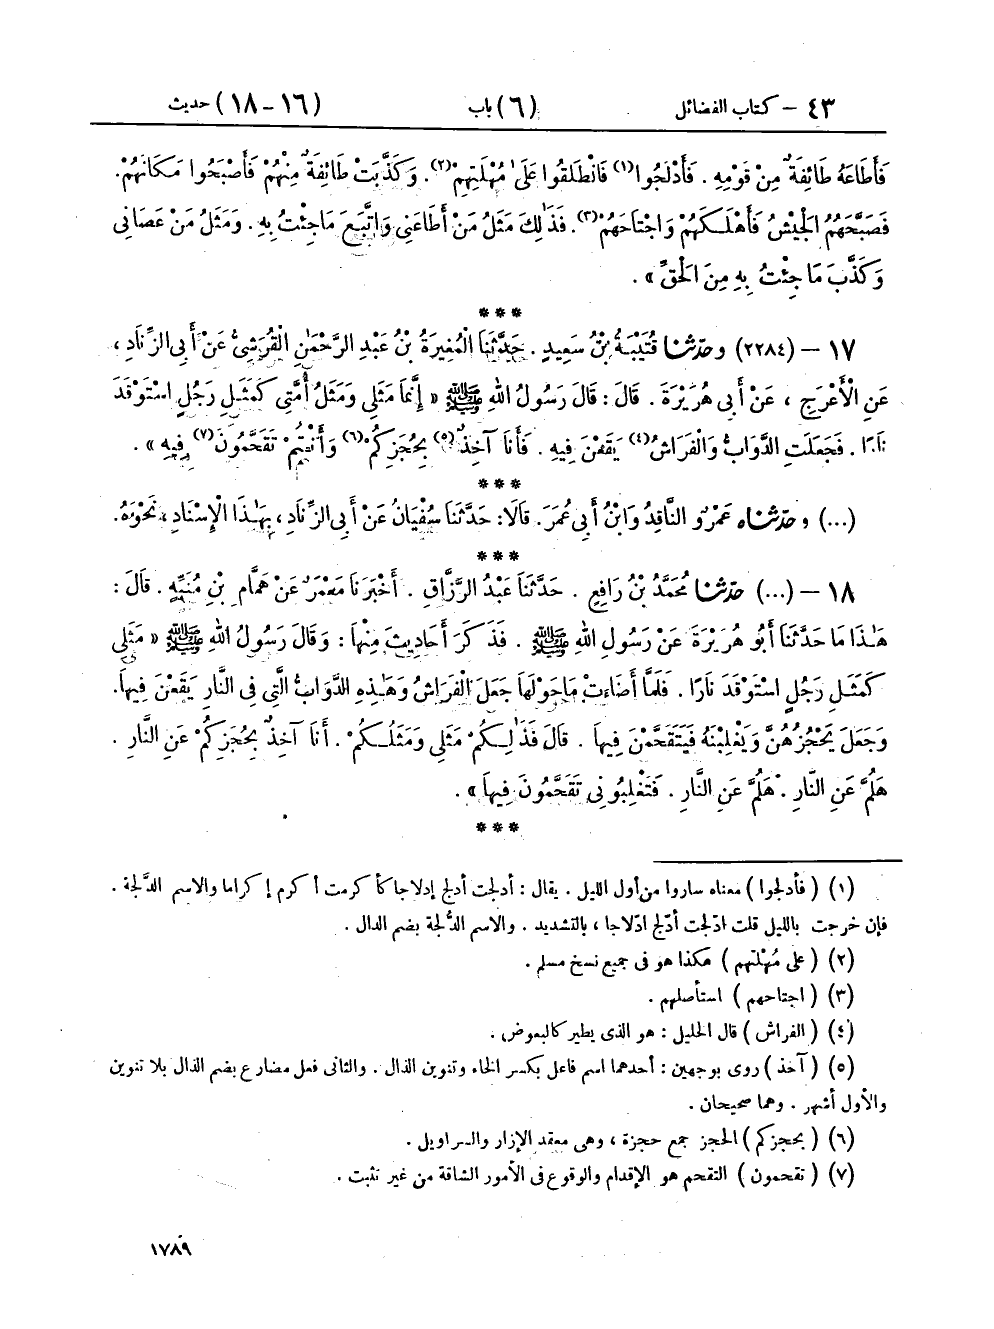 ٤٣ – كتاب الفضائل (٦) باب (١٦-١٨) حديث
فَأَطَاعَهُ طَائِفَةٌ مِنْ قَوْمِهِ . فَأَدْلَجُوا(١) فَانْطَلَقُوا عَلَىٰ مُهْلَتِهِمْ(٢). وَكَذَّبَتْ طَائِفَةٌ مِنْهُمْ فَأَصْبَحُوا مَكَانَهُمْ.
فَصَبَّحَهُمُ الْجَيْشُ فَأَهْلَكَهُمْ وَاجْتَاحَهُمْ(٣). فَذَٰلِكَ مَثَلُ مَنْ أَطَاعَنِي وَاتَّبَعَ مَا جِئْتُ بِهِ. وَمَثَلُ مَنْ عَصَانِي
وَكَذَّبَ مَا جِئْتُ بِهِ مِنَ الْحَقِّ » .
***
١٧ – (٢٢٨٤) وحدّثنا قُتَيْبَةُ بْنُ سَعِيدٍ . حَدَّثَنَا الْمُغِيرَةُ بْنُ عَبْدِ الرَّحْمٰنِ الْقُرَشِيُّ عَنْ أَبِي الزِّنَادِ ،
عَنِ الْأَعْرَجِ ، عَنْ أَبِي هُرَيْرَةَ . قَالَ : قَالَ رَسُولُ اللهِ ﷺ « إِنَّمَا مَثَلِي وَمَثَلُ أُمَّتِي كَمَثَلِ رَجُلٍ اسْتَوْقَدَ
نَارًا . فَجَعَلَتِ الدَّوَابُّ وَالْفَرَاشُ(٤) يَقَعْنَ فِيهِ . فَأَنَا آخِذٌ(٥) بِحُجَزِكُمْ(٦) وَأَنْتُمْ تَقَحَّمُونَ(٧) فِيهِ » .
***
(...) وحدّثناه عَمْرٌو النَّاقِدُ وَابْنُ أَبِي عُمَرَ. قَالَا: حَدَّثَنَا سُفْيَانُ عَنْ أَبِي الزِّنَادِ ، بِهَٰذَا الْإِسْنَادِ ، نَحْوَهُ.
***
١٨ – (...) حدّثنا مُحَمَّدُ بْنُ رَافِعٍ . حَدَّثَنَا عَبْدُ الرَّزَّاقِ . أَخْبَرَنَا مَعْمَرٌ عَنْ هَمَّامِ بْنِ مُنَبِّهٍ . قَالَ :
هَٰذَا مَا حَدَّثَنَا أَبُو هُرَيْرَةَ عَنْ رَسُولِ اللهِ ﷺ . فَذَكَرَ أَحَادِيثَ مِنْهَا : وَقَالَ رَسُولُ اللهِ ﷺ « مَثَلِي
كَمَثَلِ رَجُلٍ اسْتَوْقَدَ نَارًا . فَلَمَّا أَضَاءَتْ مَا حَوْلَهَا جَعَلَ الْفَرَاشُ وَهَٰذِهِ الدَّوَابُّ الَّتِي فِي النَّارِ يَقَعْنَ فِيهَا.
وَجَعَلَ يَحْجُزُهُنَّ وَيَغْلِبْنَهُ فَيَتَقَحَّمْنَ فِيهَا . قَالَ فَذَٰلِكُمْ مَثَلِي وَمَثَلُكُمْ . أَنَا آخِذٌ بِحُجَزِكُمْ عَنِ النَّارِ .
هَلُمَّ عَنِ النَّارِ . هَلُمَّ عَنِ النَّارِ . فَتَغْلِبُونِي تَقَحَّمُونَ فِيهَا » .
***
(١) ( فأدلجوا ) معناه ساروا من أول الليل . يقال : أدلجت أدلج إدلاجا كأ كرمت أ كرم إ كراما والاسم الدَّلجة .
فإن خرجت بالليل قلت ادّلجت أدّلج ادّلاجا ، بالتشديد . والاسم الدُّلجة بضم الدال .
(٢) ( على مُهْلتهم ) هكذا هو فى جميع نسخ مسلم .
(٣) ( اجتاحهم ) استأصلهم .
(٤) ( الفراش ) قال الخليل : هو الذى يطير كالبعوض .
(٥) ( آخذ ) روى بوجهين : أحدهما اسم فاعل بكسر الخاء وتنوين الذال . والثانى فعل مضارع بضم الذال بلا تنوين
والأول أشهر . وهما صحيحان .
(٦) ( بحجزكم ) الحجز جمع حجزة ، وهى معقد الإزار والسراويل .
(٧) ( تقحمون ) التقحم هو الإقدام والوقوع فى الأمور الشاقة من غير تثبت .
١٧٨٩